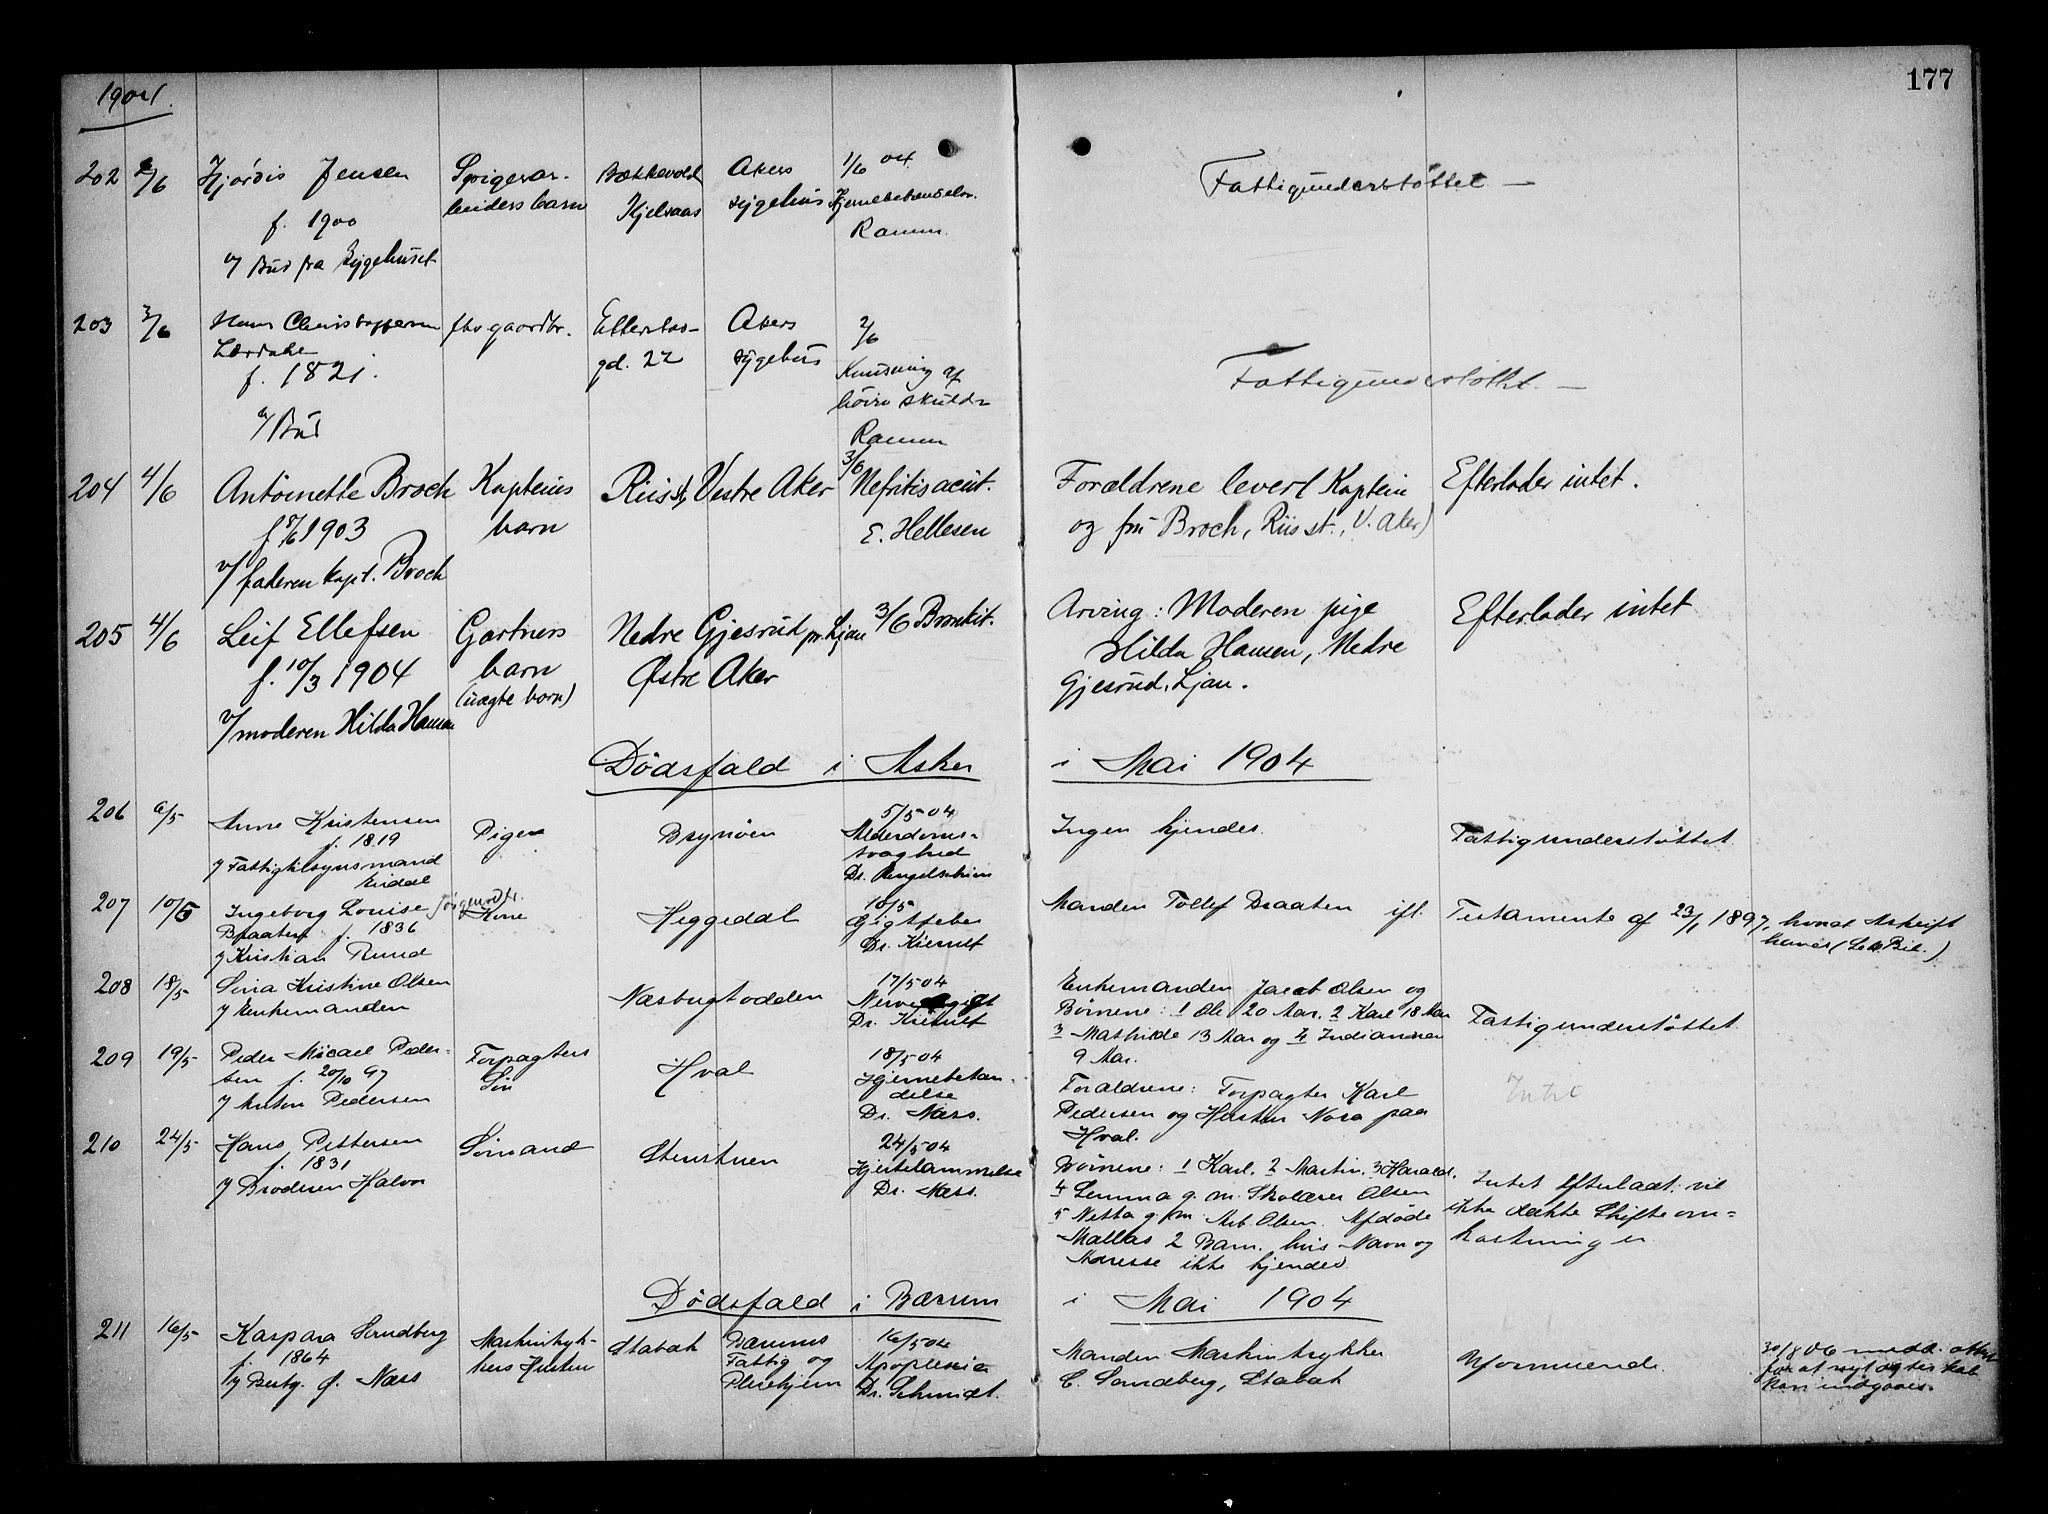 1904.
177
202 2/6 Hjørdis Jensen
f. 1900
v/ Bud fra Sygehuset
Spigerar-
beiders barn
Bækkevold
Kjelsaas
Akers
sygehus
1/6 04
Hjernebetændelse.
Ramm.
Fattigunderstøttet —
203 3/6 Hans Christophersen
Lærdahl
f. 1821.
v/ Bud
fhv gaardbr.
Etterstad-
gd. 22
Akers
sygehus
2/6
Knusning af
høire skulder
Ramm
Fattigunderstøttet. —
204 4/6 Antoinette Broch
f 8/6 1903
v/ faderen kapt. Broch
Kapteins
barn
Riis st, Vestre Aker
3/6
Nefritis acut.
E. Hellesen
Forældrene lever (Kaptein
og fru Broch, Riis st., V. Aker)
Efterlader intet.
205 4/6 Leif Ellefsen
f. 10/3 1904
v/ moderen Hilda Hansen
Gartners
barn
(uægte barn)
Nedre Gjesrud pr. Ljan
Østre Aker
3/6 Bronkit.
Arving: Moderen pige
Hilda Hansen, Nedre
Gjesrud, Ljan.
Efterlader intet
Dødsfald i Asker i Mai 1904
206 6/5 Anne Kristensen
f. 1819
v/ Fattigtilsynsmand
Eidal
Pige
Brynøen
5/5 04
Alderdoms-
svaghed
Dr.
Ingen kjendes.
Fattigunderstøttet
207 10/5 Ingeborg Louise Jørgensdtr.
Braaten f. 1836
v/ Kristian Rund
Kone
Heggedal
10/5
Gigtfeber
Dr. Kierulf
Manden Tollef Braaten ifl.
Testamente af 23/1 1897, hvoraf Afskrift
haves
208 18/5 Sina Kristine Olsen
v/ Enkemanden
Næsbugtodden
17/5 04
Nervegigt
Dr. Kierulf
Enkemanden Jacob Olsen og
Børnene: 1 Ole 20 Aar, 2 Karl 18 Aar
3 Mathilde 13 Aar og 4 Indianna
9 Aar.
Fattigunderstøttet
209 19/5 Peder Micael Peder-
sen f. 20/10 97
v/ Anton Pedersen
Forpagters
Søn
Hval
18/5 04
Hjernebetæn-
delse
Dr. Næss.
Forældrene: Forpagter Karl
Pedersen og Hustru Nora paa
Hval.
Intet
210 24/5 Hans Pettersen
f. 1831
v/ Broderen Halvor
Sømand
Stenstuen
24/5 04
Hjertelammelse
Dr. Næss.
Børnene: 1 Karl. 2 Martin. 3 Harald.
4 Lemma g. m. Skolærer Olsen
5 Netta g. m. Arb. Olsen. Afdøde
Mallas 2 Barn, hvis Navn og
Adresse ikke kjendes
Intet efterladt. vil
ikke dække Skifteom-
kostninger
Dødsfald i Bærum i Mai 1904
211 16/5 Kaspara Sundberg
f. 1864
v/ Bestg. J. Næss
Maskintryk-
kers Hustru
Stabæk
Bærums
Fattig og
Pleiehjem
16/5 04
Apoplexia
Dr. Schmidt.
Manden Maskintrykker
C. Sundberg, Stabæk
Uformuende.
30/8 06 medd. attest
for at nyt ægteskab
kan indgaaes.